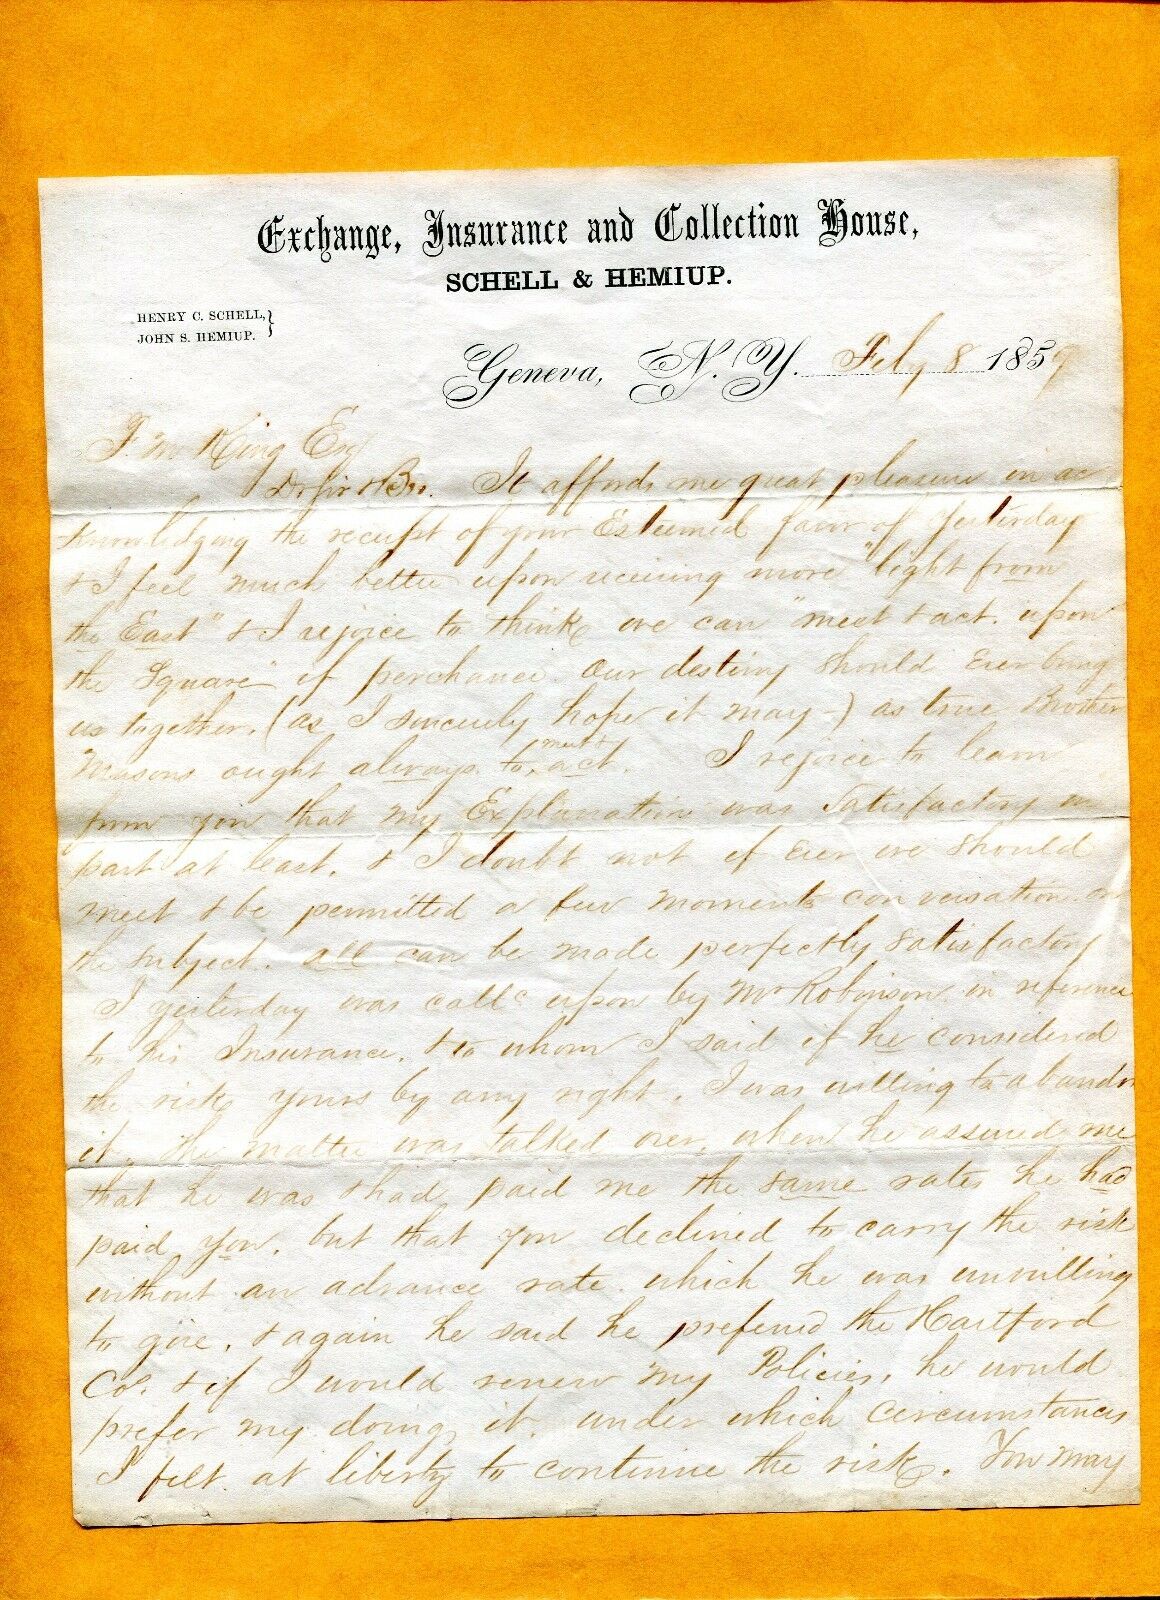 Exchange, Insurance and Collection House,
SCHELL & HEMIUP.
HENRY C. SCHELL,}
JOHN S. HEMIUP.
Geneva, N. Y. Feby 8 1859
T. M King Esq
Dr Sir & Bro. It affords me great pleasure in ac
knowledging the receipt of your Esteemed favor of yesterday
& I feel much better upon receiving more "light from
the East" & I rejoice to think we can "meet & act. upon
the Square" if perchance. Our destiny should Ever bring
us together, (as I sincerely hope it may -) as true Brother
Masons ought always to, meet & act. I rejoice to learn
from you that my Explanation was Satisfactory in
part at least. & I doubt not if Ever we should
meet & be permitted a few moments conversation on
the subject. all can be made perfectly satisfactory
I yesterday was calld upon by Mr Robinson in reference
to his Insurance, & to whom I said if he considered
the risk yours by any right, I was willing to abandon
it. The matter was talked over, when he assured me
that he was & had paid me the same rates he had
paid you, but that you declined to carry the risk
without an advance rate which he was unwilling
to give. & again he said he preferred the Hartford
Co. & if I would renew my Policies, he would
prefer my doing it, under which circumstances
I felt at liberty to continue the risk. You may